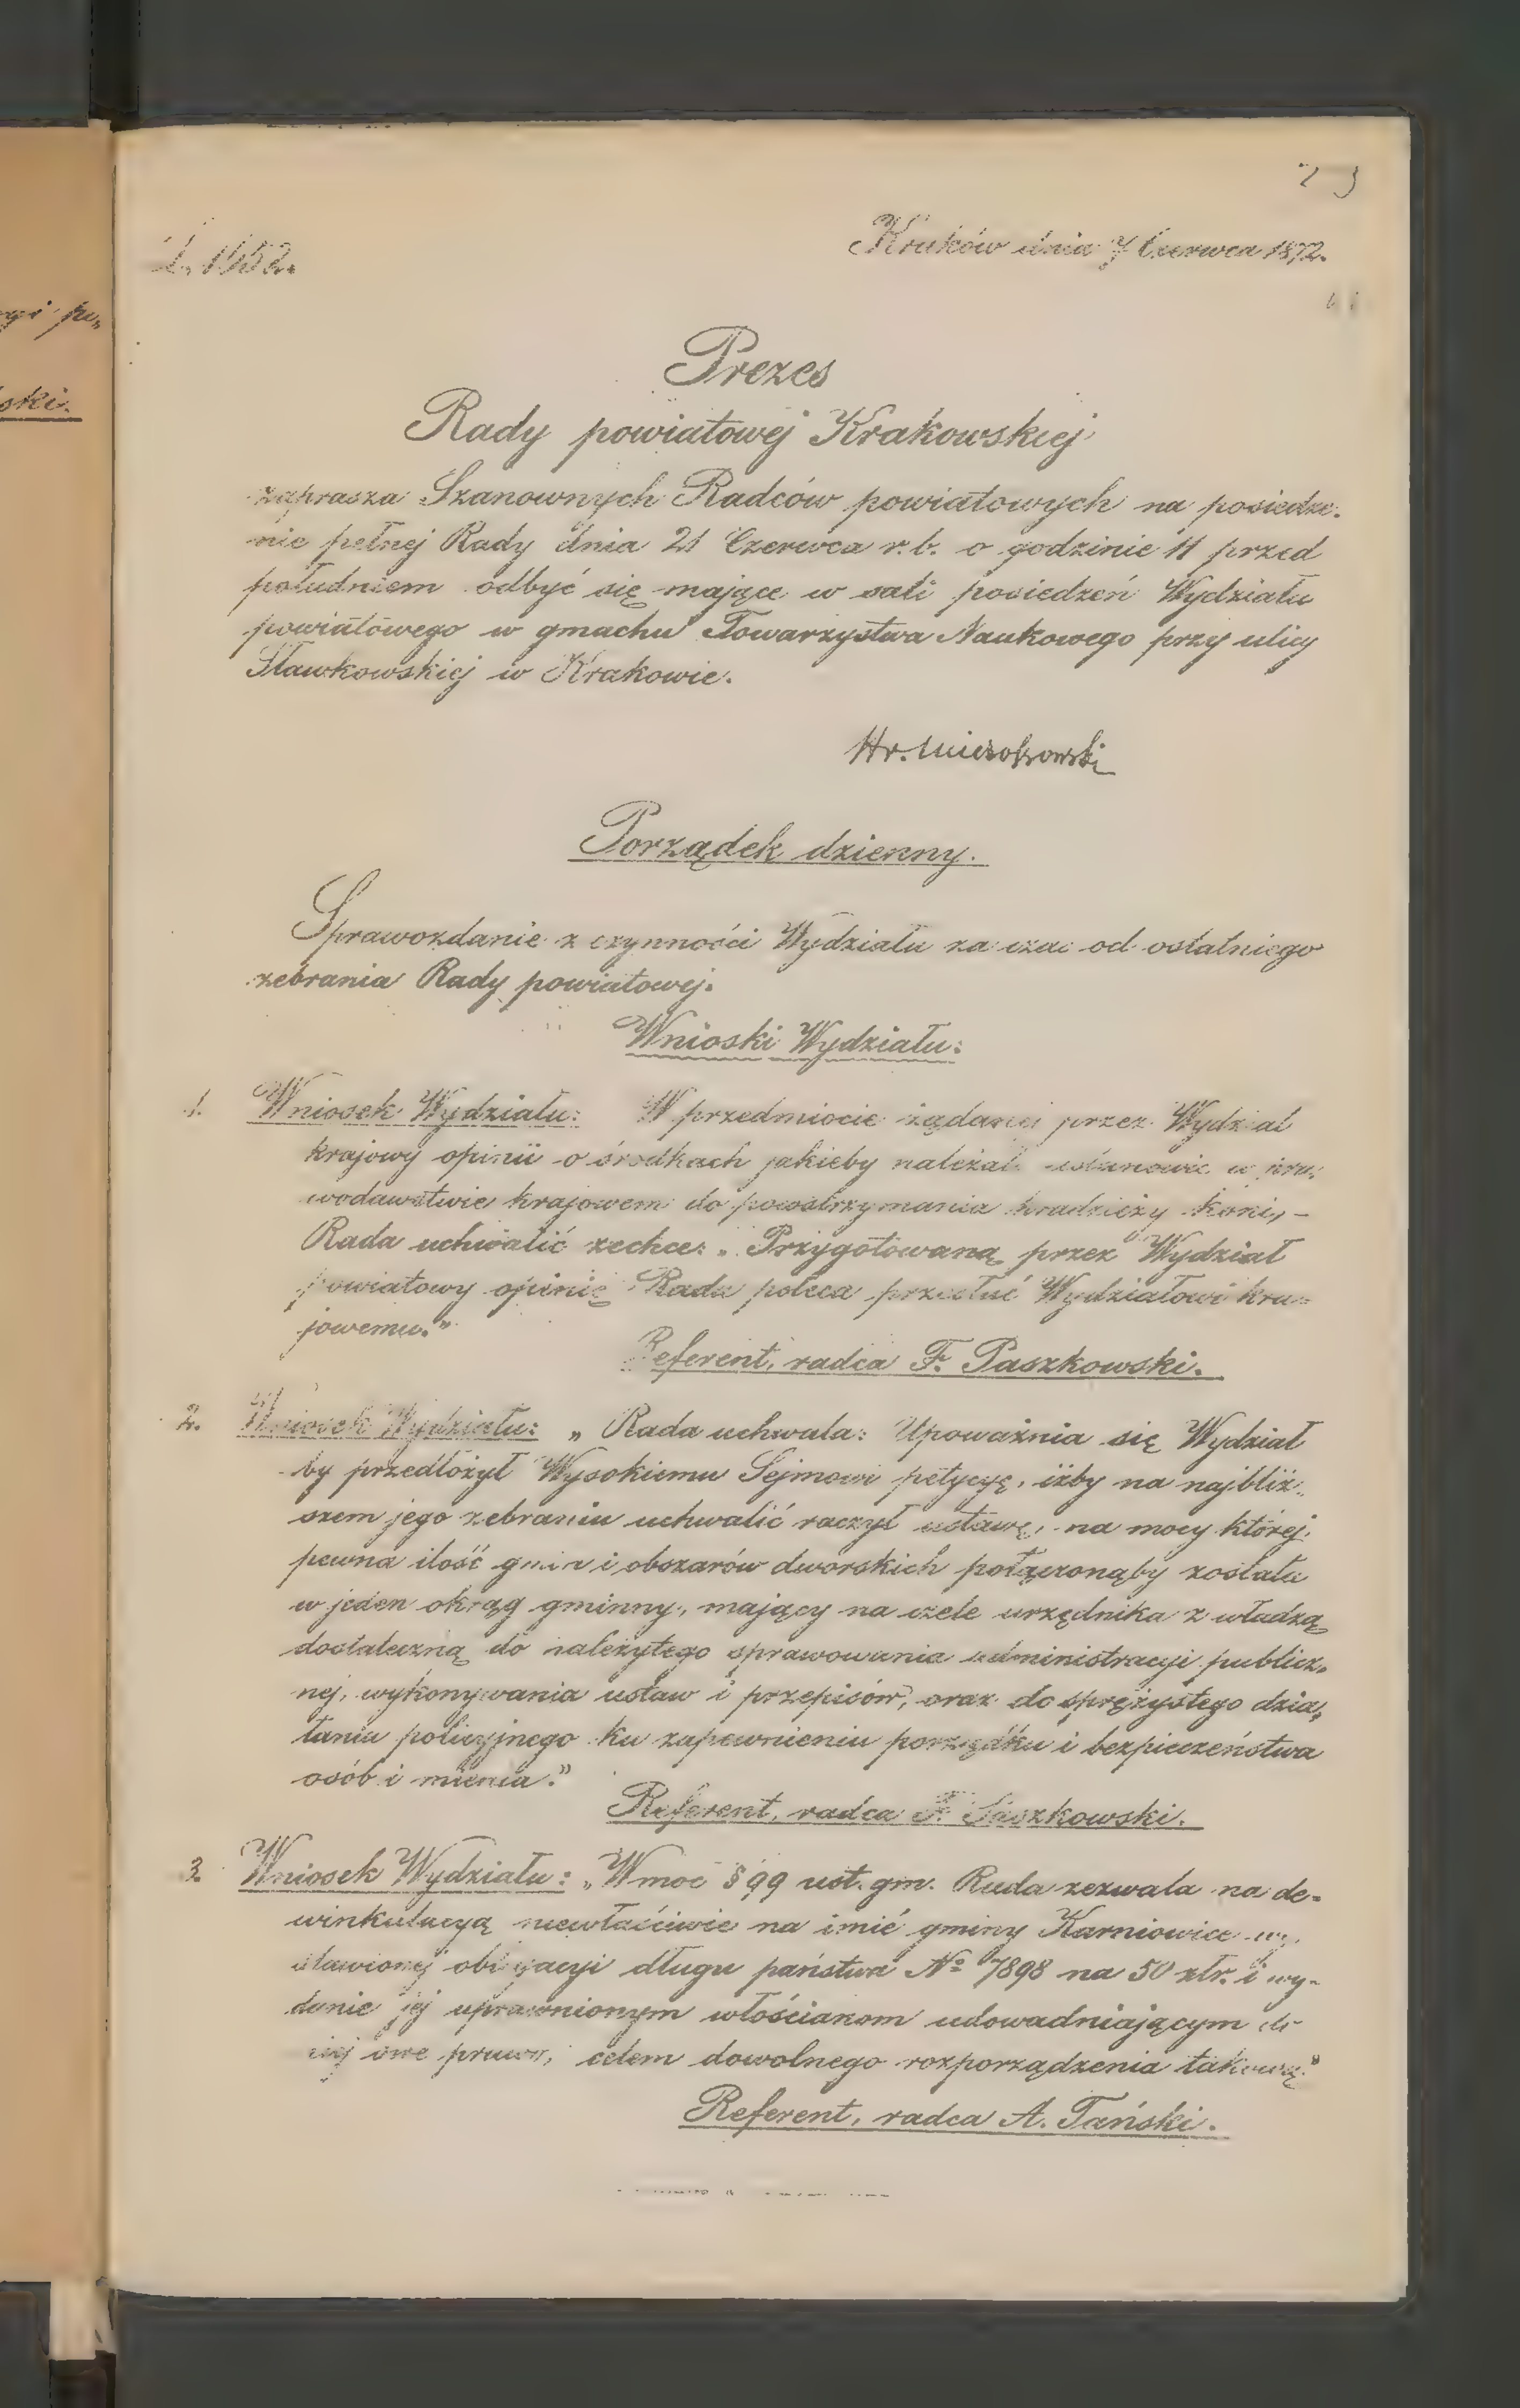 23
L. 1652.
Kraków dnia 7 Czerwca 1872.
Prezes
Rady powiatowej Krakowskiej
zaprasza Szanownych Radców powiatowych na posiedze-
nie pełnej Rady dnia 21 Czerwca r. b. o godzinie 11 przed
południem odbyć się mające w sali posiedzeń Wydziału
powiatowego w gmachu Towarzystwa Naukowego przy ulicy
Sławkowskiej w Krakowie.
Hr. Mieroszowski
Porządek dzienny.
Sprawozdanie z czynności Wydziału za czas od ostatniego
zebrania Rady powiatowej.
Wnioski Wydziału:
1. Wniosek Wydziału: W przedmiocie żądanej przez Wydział
krajowy opinii o środkach jakieby należało ustanowić w pra-
wodawstwie krajowem do powstrzymania kradzieży koni, –
Rada uchwalić zechce: „Przygotowaną przez Wydział
powiatowy opinię Rada poleca przesłać Wydziałowi kra-
jowemu."
Referent, radca F. Paszkowski.
2. Wniosek Wydziału: „Rada uchwala: Upoważnia się Wydział
by przedłożył Wysokiemu Sejmowi petycyę, iżby na najbliż-
szem jego zebraniu uchwalić raczył ustawę, na mocy której
pewna ilość gmin i obszarów dworskich połączonąby została
w jeden okrąg gminny, mający na czele urzędnika z władzą
dostateczną do należytego sprawowania administracyi publicz-
nej, wykonywania ustaw i przepisów, oraz do sprężystego dzia-
łania policyjnego ku zapewnieniu porządku i bezpieczeństwa
osób i mienia."
Referent, radca F. Paszkowski.
3. Wniosek Wydziału: „W moc § 99 ust. gm. Rada zezwala na de-
winkulacyą niewłaściwie na imię gminy Karniowice wy-
stawionej obligacyi długu państwa No 7898 na 50 złr. i wy-
danie jej uprawnionym włościanom udowadniającym do
niej swe prawo, celem dowolnego rozporządzenia takową."
Referent, radca A. Tański.